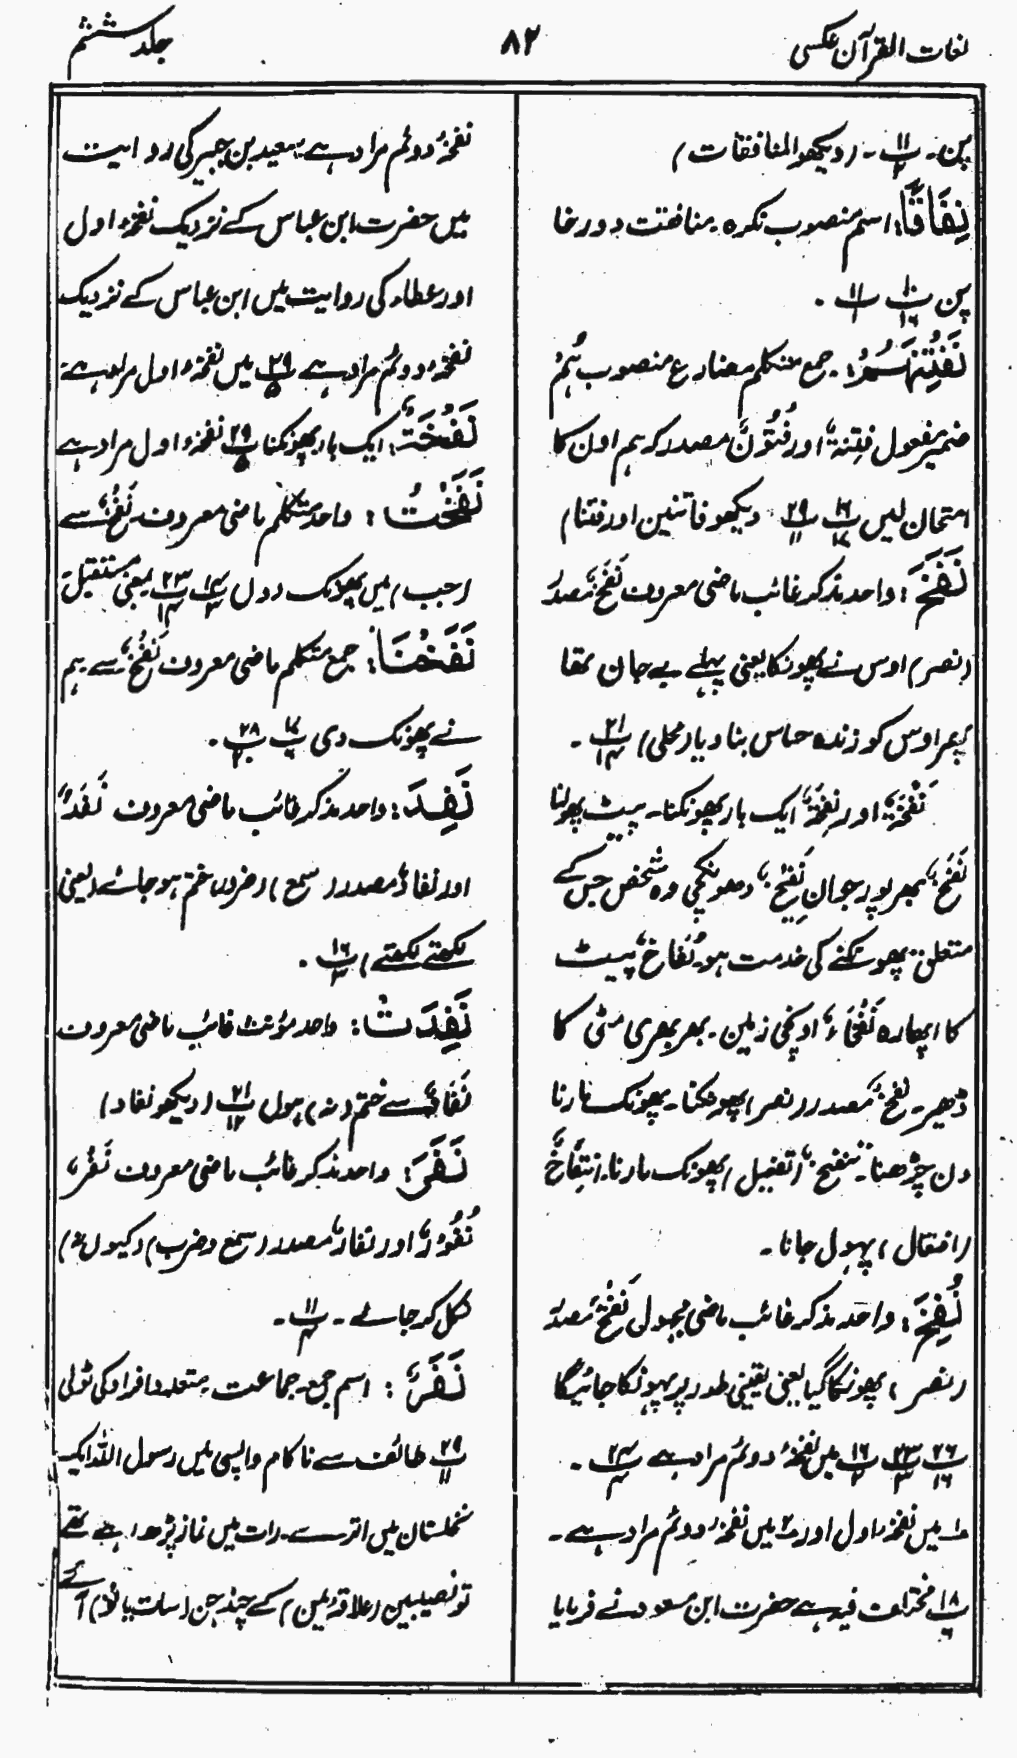 لغات القرآن عکسی ۸۲ جلد ششم
پن۔ پ ۱۱ ۲۔ (دیکھو المنافقات)
نِفَاقًا: اسم منصوب نکرہ۔ منافقت دو رخا
پن پ ۱۰ ۱۶ پ ۱۱ ۱۔
نَفْتِنَهُمْ: جمع متکلم مضارع منصوب ہُمْ
ضمیر مفعول فِتْنَةٌ اور فُتُوْنٌ مصدر کہ ہم اون کا
امتحان لیں پ ۱۶ ۱۷ پ ۲۹ ۱۱ دیکھو فاتنین اور فتنا)
نَفَخَ: واحد مذکر غائب ماضی معروف نَفْخٌ مصدر
(نصر) اوس نے پھونکا یعنی پہلے بے جان تھا
پھر اوس کو زندہ حساس بنا دیا (محلی) پ ۲۱ ۱۴۔
نَفْخَةٌ اور نِفْخَةٌ ایک بار پھونکنا۔ پیٹ پھولنا
نَفْخٌ بھرپور جوان نَفِیْخٌ دھونکچی وہ شخص جس کے
متعلق پھونکنے کی خدمت ہو۔ نُفَاخٌ پیٹ
کا اپھارہ نَفْخَاءُ اونچی زمین۔ بھربھری مٹی کا
ڈھیر۔ نَفْخٌ مصدر (نصر) پھونکنا۔ پھونک مارنا
دن چڑھنا۔ تنفیخ (تفعیل) پھونک مارنا۔ اِنْتِفَاخٌ
(افتعال) پھول جانا۔
نُفِخَ: واحد مذکر غائب ماضی مجہول نَفْخٌ مصدر
(نصر) پھونکا گیا یعنی یقینی طور پر پھونکا جائیگا
پ ۲۶ ۱۶ پ ۲۳ ۳ پ ۱۶ ۲ میں نفخۂ دوئم مراد ہے پ ۲۴ ۴۔
۱ میں نفخۂ اول اور ۲ میں نفخۂ دوئم مراد ہے۔
پ ۱۸ ۶ مختلف فیہ ہے حضرت ابن مسعود نے فرمایا
نفخۂ دوئم مراد ہے سعید بن جبیر کی روایت
میں حضرت ابن عباس کے نزدیک نفخۂ اول
اور عطاء کی روایت میں ابن عباس کے نزدیک
نفخۂ دوئم مراد ہے پ ۲۹ ۵ میں نفخۂ اول مراد ہے۔
نَفْخَةٌ: ایک بار پھونکنا پ ۲۹ ۵ نفخۂ اول مراد ہے
نَفَخْتُ: واحد متکلم ماضی معروف نَفْخٌ سے
(جب) میں پھونک دوں پ ۱۴ ۳ پ ۲۳ ۱۴ بمعنی مستقبل
نَفَخْنَا: جمع متکلم ماضی معروف نَفْخٌ سے ہم
نے پھونک دی پ ۱۷ ۶ پ ۲۸ ۲۰۔
نَفِدَ: واحد مذکر غائب ماضی معروف نَفَدٌ
اور نفادٌ مصدر (سمع) (ضرور) ختم ہو جائے (یعنی
لکھتے لکھتے) پ ۱۶ ۳۔
نَفِدَتْ: واحد مؤنث غائب ماضی معروف
نَفَادٌ سے ختم (نہ) ہوں پ ۲۱ ۱۲ (دیکھو نفاد)
نَفَرَ: واحد مذکر غائب ماضی معروف نَفْرٌ،
نُفُوْرٌ اور نفارٌ مصدر (سمع و ضرب) (کیوں نہ)
نکل کر جائے۔ پ ۱۱ ۴۔
نَفَرٌ: اسم جمع۔ جماعت۔ متعدد افراد کی ٹولی
پ ۲۹ ۱۱ طائف سے ناکام واپسی میں رسول اللہ ایک
نخلستان میں اترے۔ رات میں نماز پڑھ رہے تھے
تو نصیبین (علاقہ یمن) کے چند جن (سات یا نو) آئے